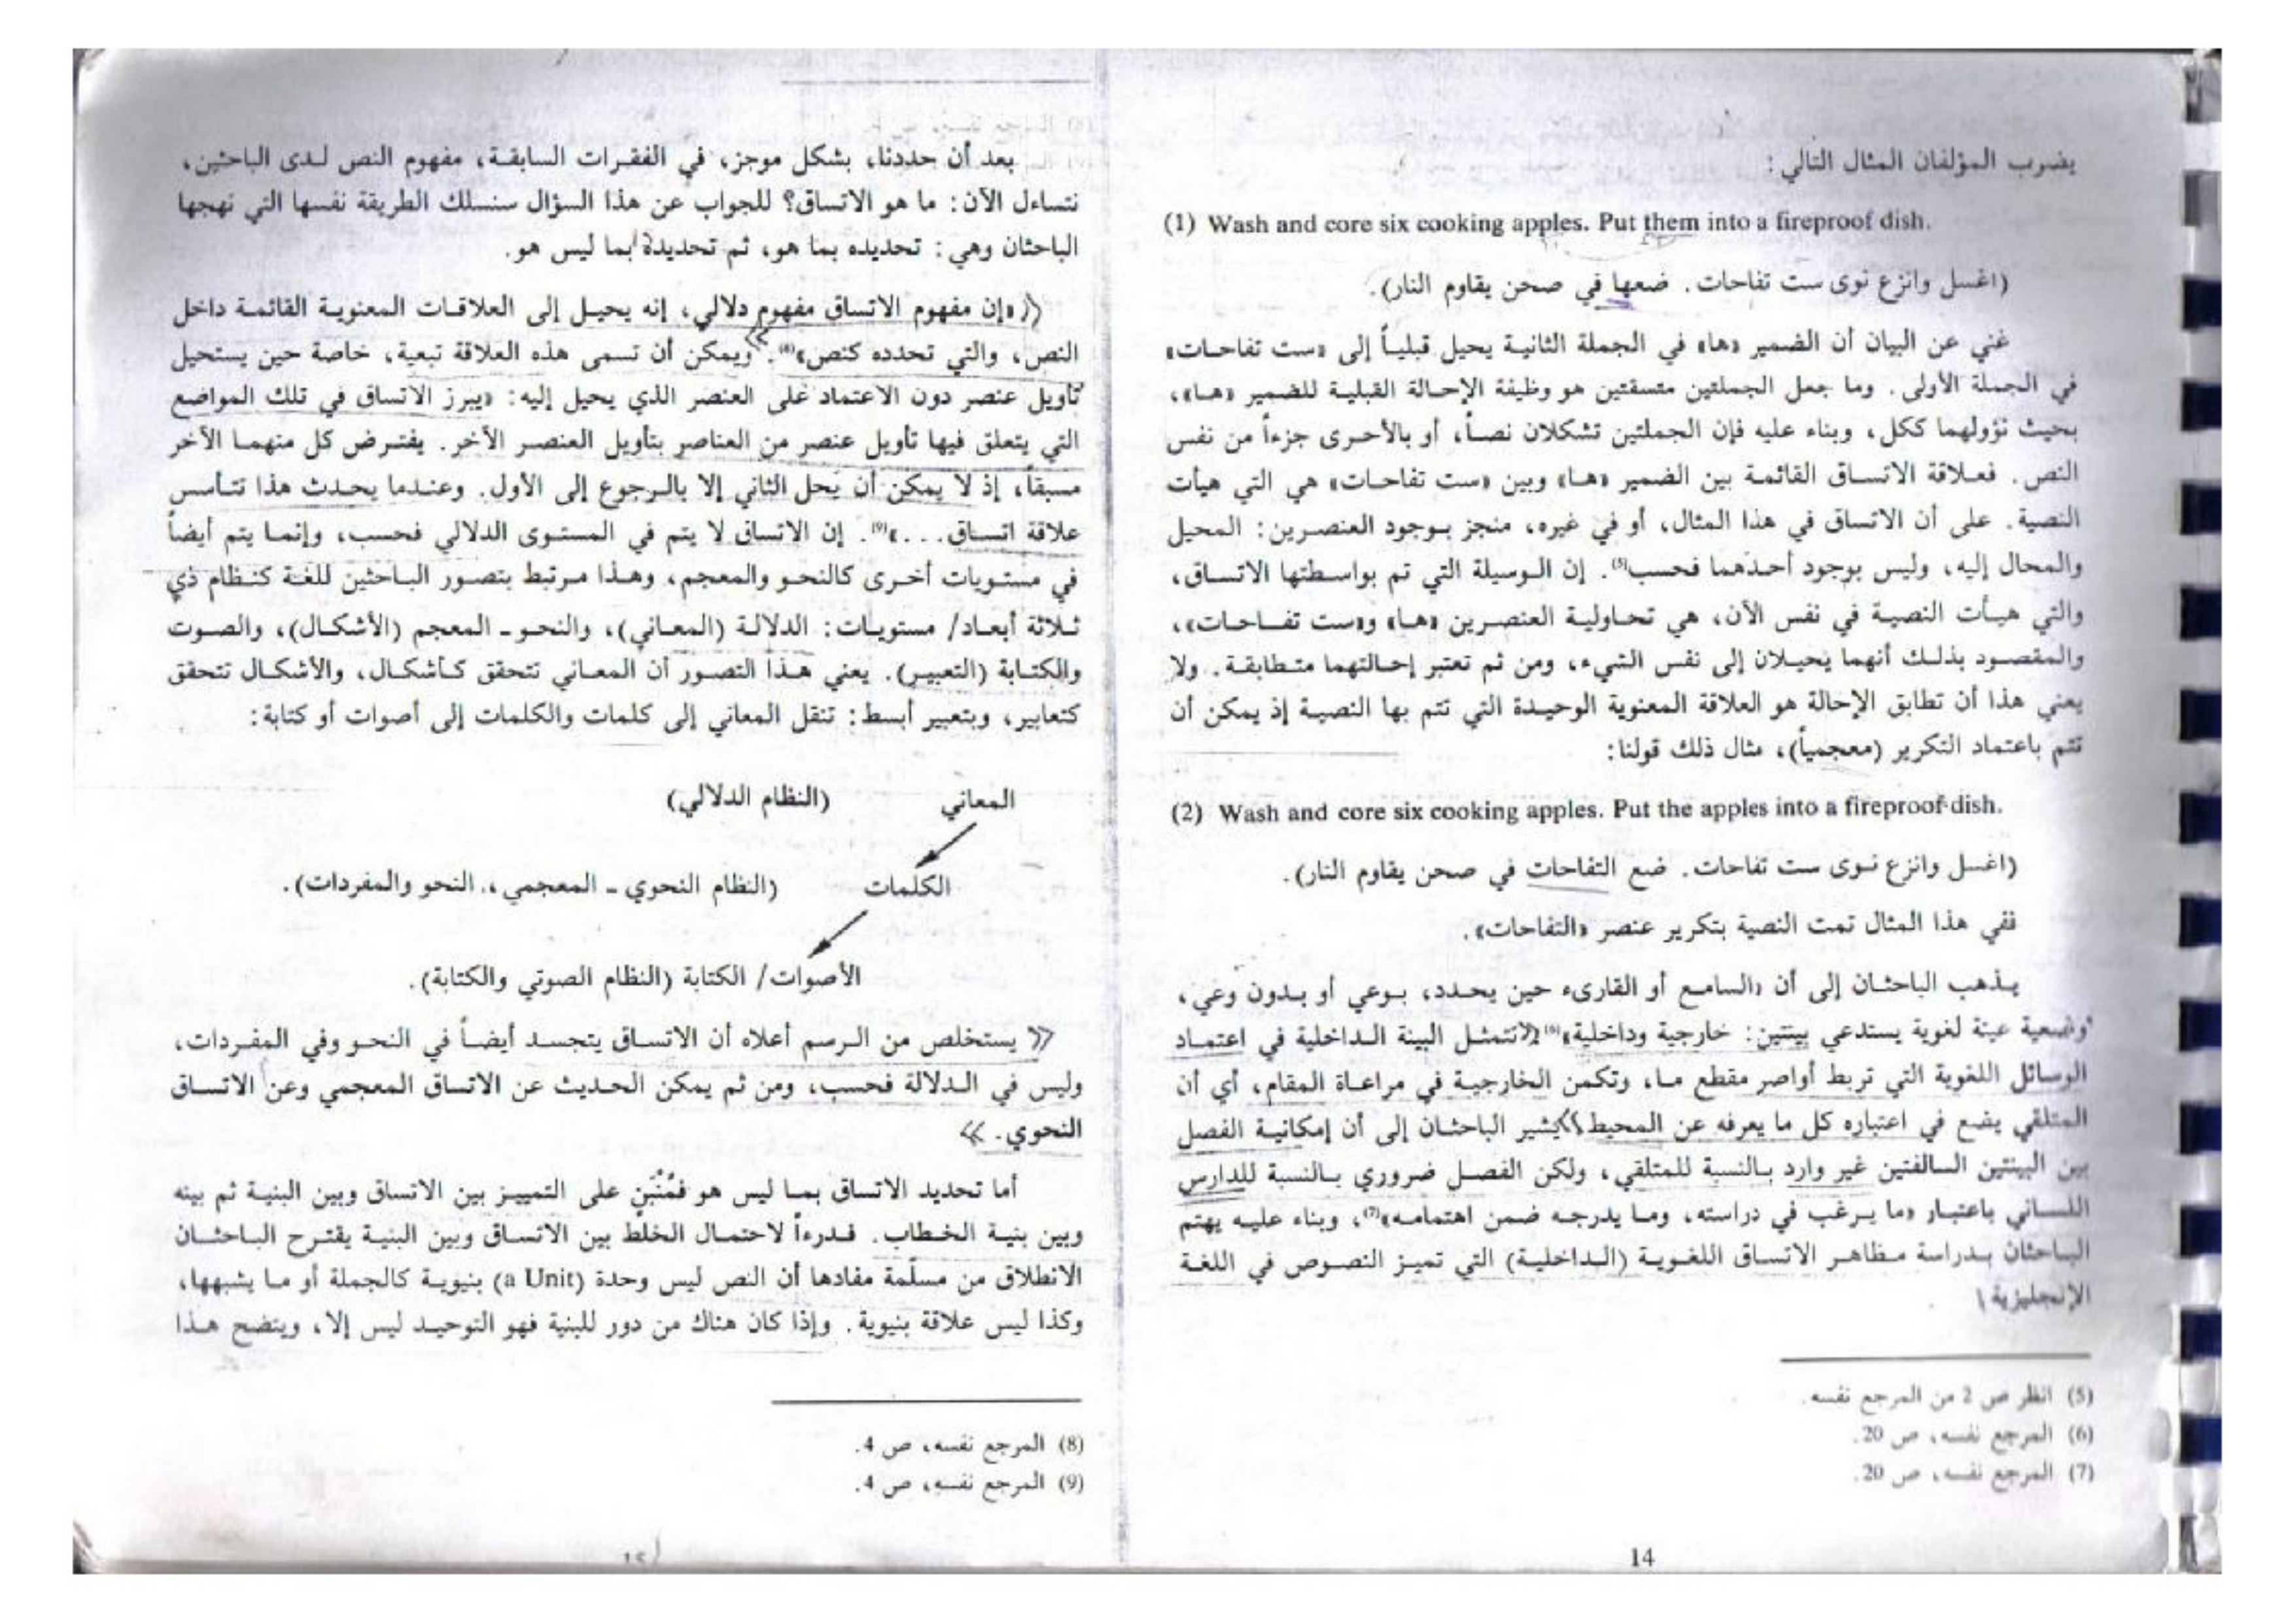 يضرب المؤلفان المثال التالي:
(1) Wash and core six cooking apples. Put them into a fireproof dish.
(اغسل وانزع نوى ست تفاحات. ضعها في صحن يقاوم النار).
غني عن البيان أن الضمير «ها» في الجملة الثانية يحيل قبلياً إلى «ست تفاحات»
في الجملة الأولى. وما جعل الجملتين متسقتين هو وظيفة الإحالة القبلية للضمير «ها»،
بحيث نؤولهما ككل، وبناء عليه فإن الجملتين تشكلان نصاً، أو بالأحرى جزءاً من نفس
النص. فعلاقة الاتساق القائمة بين الضمير «ها» وبين «ست تفاحات» هي التي هيأت
النصية. على أن الاتساق في هذا المثال، أو في غيره، منجز بوجود العنصرين: المحيل
والمحال إليه، وليس بوجود أحدهما فحسب(5). إن الوسيلة التي تم بواسطتها الاتساق،
والتي هيأت النصية في نفس الآن، هي تحاولية العنصرين «ها» و«ست تفاحات»،
والمقصود بذلك أنهما يحيلان إلى نفس الشيء، ومن ثم تعتبر إحالتهما متطابقة. ولا
يعني هذا أن تطابق الإحالة هو العلاقة المعنوية الوحيدة التي تتم بها النصية إذ يمكن أن
تتم باعتماد التكرير (معجمياً)، مثال ذلك قولنا:
(2) Wash and core six cooking apples. Put the apples into a fireproof dish.
(اغسل وانزع نوى ست تفاحات. ضع التفاحات في صحن يقاوم النار).
ففي هذا المثال تمت النصية بتكرير عنصر «التفاحات».
يذهب الباحثان إلى أن «السامع أو القارىء حين يحدد، بوعي أو بدون وعي،
وضعية عينة لغوية يستدعي بينتين: خارجية وداخلية»(6) تتمثل البينة الداخلية في اعتماد
الوسائل اللغوية التي تربط أواصر مقطع ما، وتكمن الخارجية في مراعاة المقام، أي أن
المتلقي يضع في اعتباره كل ما يعرفه عن المحيط. يشير الباحثان إلى أن إمكانية الفصل
بين البينتين السالفتين غير وارد بالنسبة للمتلقي، ولكن الفصل ضروري بالنسبة للدارس
اللساني باعتبار «ما يرغب في دراسته، وما يدرجه ضمن اهتمامه»(7)، وبناء عليه يهتم
الباحثان بدراسة مظاهر الاتساق اللغوية (الداخلية) التي تميز النصوص في اللغة
الإنجليزية
(5) انظر ص 2 من المرجع نفسه.
(6) المرجع نفسه، ص 20.
(7) المرجع نفسه، ص 20.
14
بعد أن حددنا، بشكل موجز، في الفقرات السابقة، مفهوم النص لدى الباحثين،
نتساءل الآن: ما هو الاتساق؟ للجواب عن هذا السؤال سنسلك الطريقة نفسها التي نهجها
الباحثان وهي: تحديده بما هو، ثم تحديده بما ليس هو.
«إن مفهوم الاتساق مفهوم دلالي، إنه يحيل إلى العلاقات المعنوية القائمة داخل
النص، والتي تحدده كنص»(8). ويمكن أن تسمى هذه العلاقة تبعية، خاصة حين يستحيل
تأويل عنصر دون الاعتماد على العنصر الذي يحيل إليه: «يبرز الاتساق في تلك المواضع
التي يتعلق فيها تأويل عنصر من العناصر بتأويل العنصر الآخر. يفترض كل منهما الآخر
مسبقاً، إذ لا يمكن أن يحل الثاني إلا بالرجوع إلى الأول. وعندما يحدث هذا تتأسس
علاقة اتساق...»(9). إن الاتساق لا يتم في المستوى الدلالي فحسب، وإنما يتم أيضاً
في مستويات أخرى كالنحو والمعجم، وهذا مرتبط بتصور الباحثين للغة كنظام ذي
ثلاثة أبعاد/ مستويات: الدلالة (المعاني)، والنحو - المعجم (الأشكال)، والصوت
والكتابة (التعبير). يعني هذا التصور أن المعاني تتحقق كأشكال، والأشكال تتحقق
كتعابير، وبتعبير أبسط: تنقل المعاني إلى كلمات والكلمات إلى أصوات أو كتابة:
المعاني (النظام الدلالي)
الكلمات (النظام النحوي - المعجمي، النحو والمفردات).
الأصوات/ الكتابة (النظام الصوتي والكتابة).
« يستخلص من الرسم أعلاه أن الاتساق يتجسد أيضاً في النحو وفي المفردات،
وليس في الدلالة فحسب، ومن ثم يمكن الحديث عن الاتساق المعجمي وعن الاتساق
النحوي. »
أما تحديد الاتساق بما ليس هو فمُنْبَنٍ على التمييز بين الاتساق وبين البنية ثم بينه
وبين بنية الخطاب. فدرءاً لاحتمال الخلط بين الاتساق وبين البنية يقترح الباحثان
الانطلاق من مسلّمة مفادها أن النص ليس وحدة (a Unit) بنيوية كالجملة أو ما يشبهها،
وكذا ليس علاقة بنيوية. وإذا كان هناك من دور للبنية فهو التوحيد ليس إلا، ويتضح هذا
(8) المرجع نفسه، ص 4.
(9) المرجع نفسه، ص 4.
15